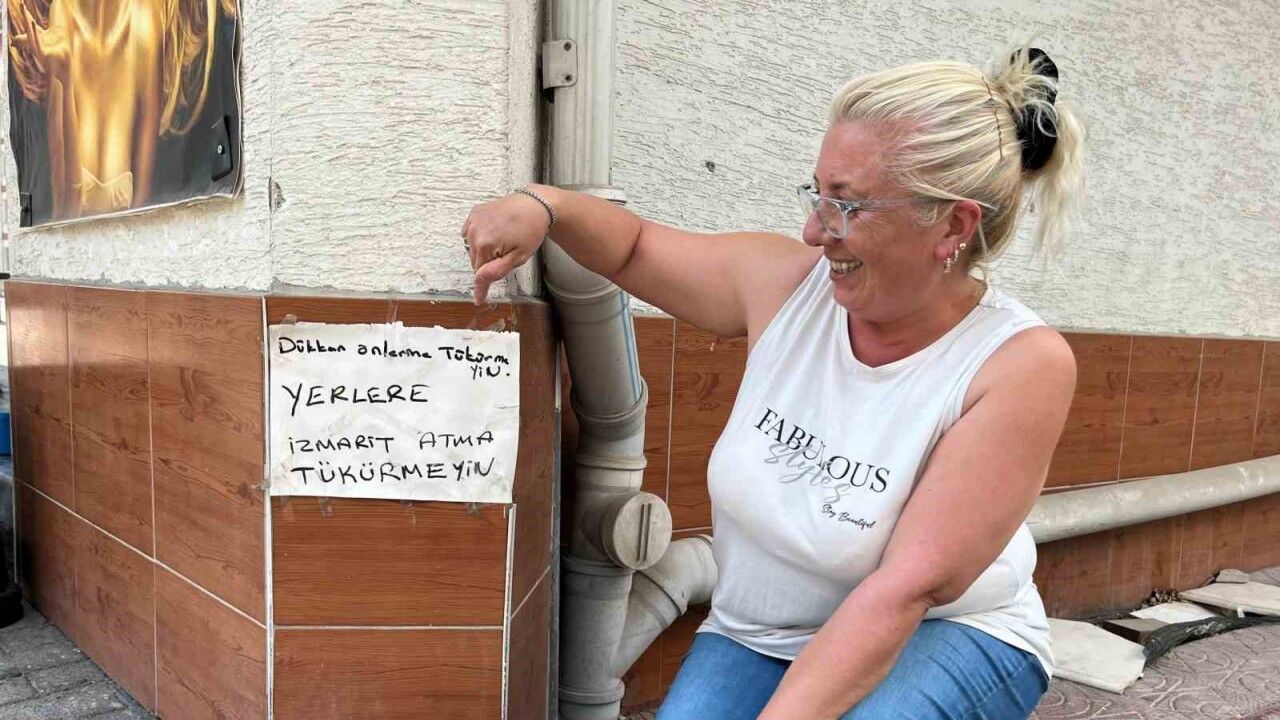 Dükkan önlerıne Tükürme
YİN.
YERLERE
İZMARİT ATMA
TÜKÜRMEYİN
FABULOUS
Styles
Stay Beautiful